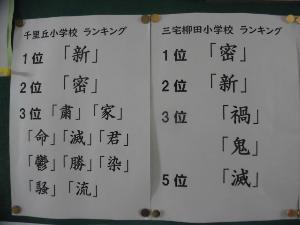 千里丘小学校 ランキング
1位 「新」
2位 「密」
3位 「粛」「家」
「命」「滅」「君」
「鬱」「勝」「染」
「騒」「流」
三宅柳田小学校 ランキング
1位 「密」
2位 「新」
3位 「禍」
「鬼」
5位 「滅」